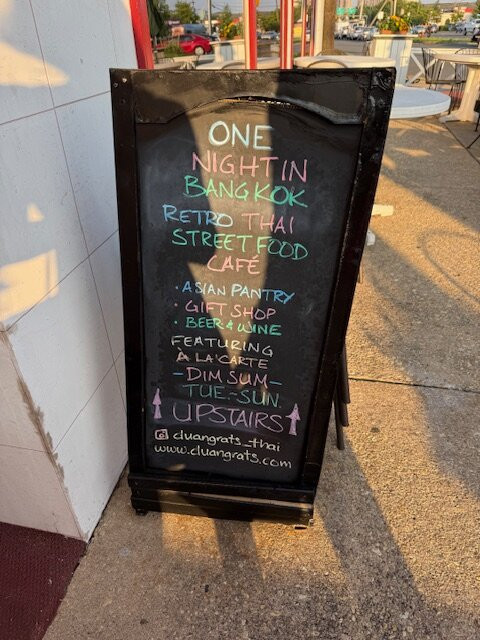 ONE
NIGHT IN
BANGKOK
RETRO THAI
STREET FOOD
CAFÉ
• ASIAN PANTRY
• GIFT SHOP
• BEER & WINE
FEATURING
À LA'CARTE
- DIM SUM -
TUE.-SUN.
↑ UPSTAIRS ↑
cluangrats_thai
www.cluangrats.com